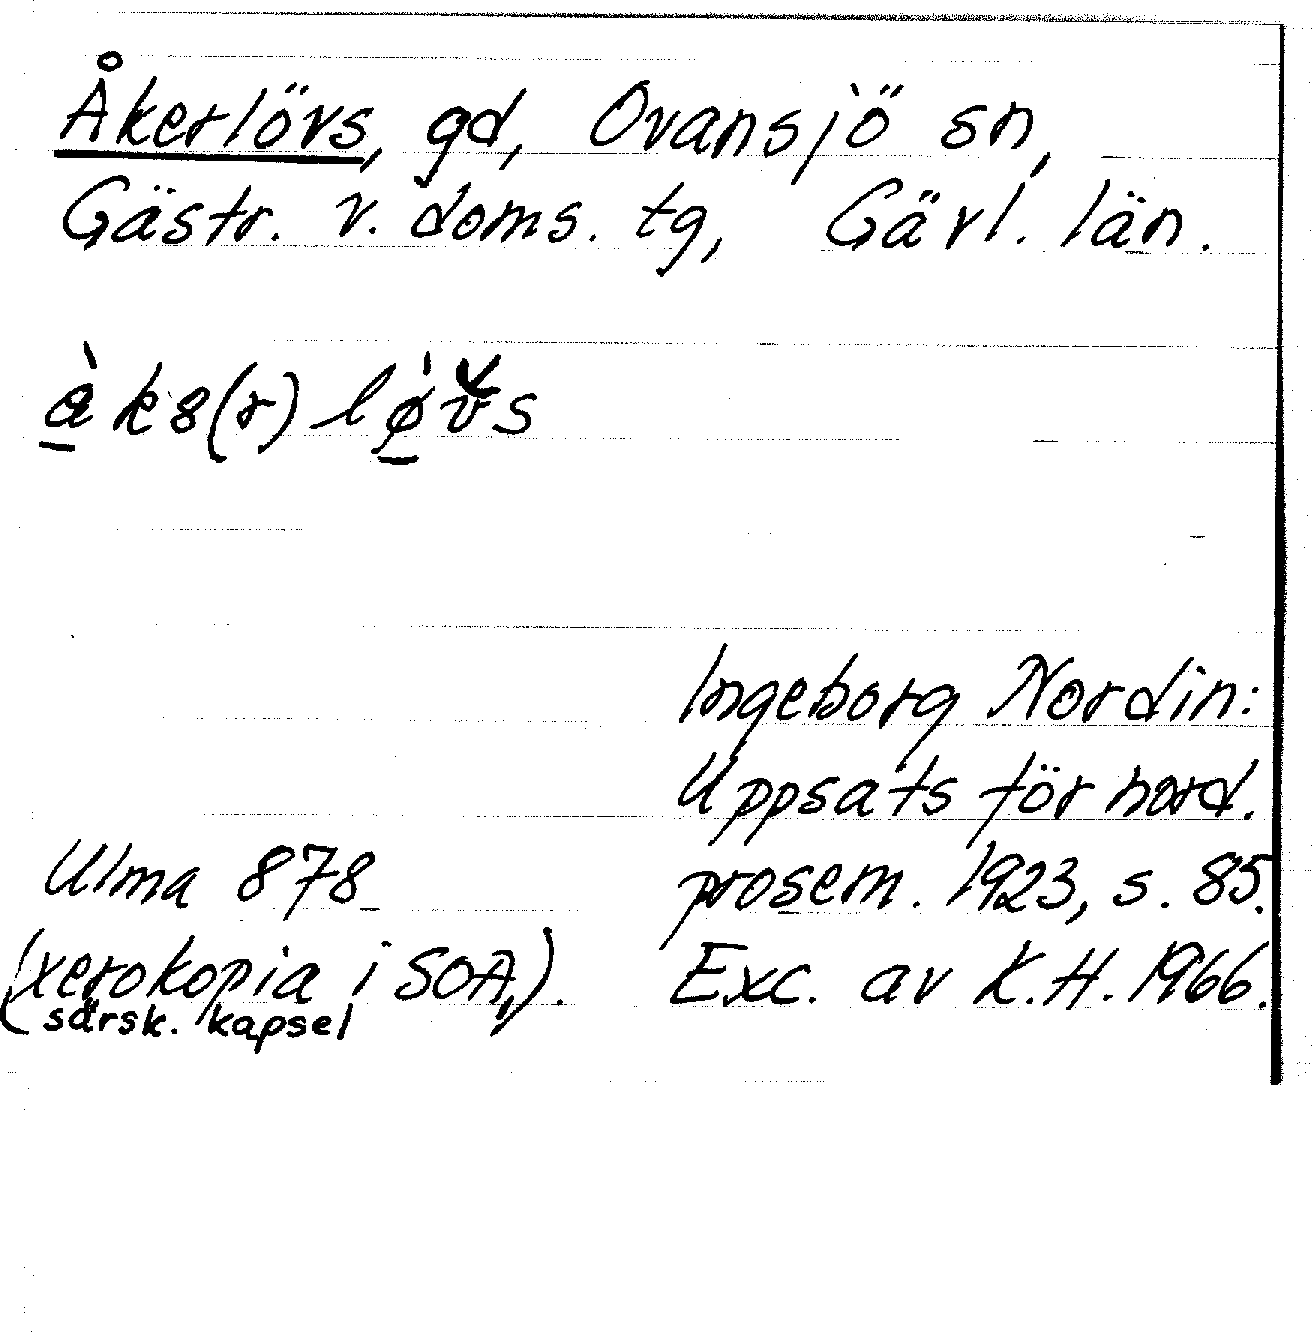 Åkerlövs, gd, Ovansjö sn,
Gästr. v. doms. tg, Gävl. län.
Ingeborg Nordin:
Uppsats för nord.
prosem. 1923, s. 85.
Exc. av K.H. 1966.
Ulma 878
(xerokopia i SOA,).
särsk. kapsel